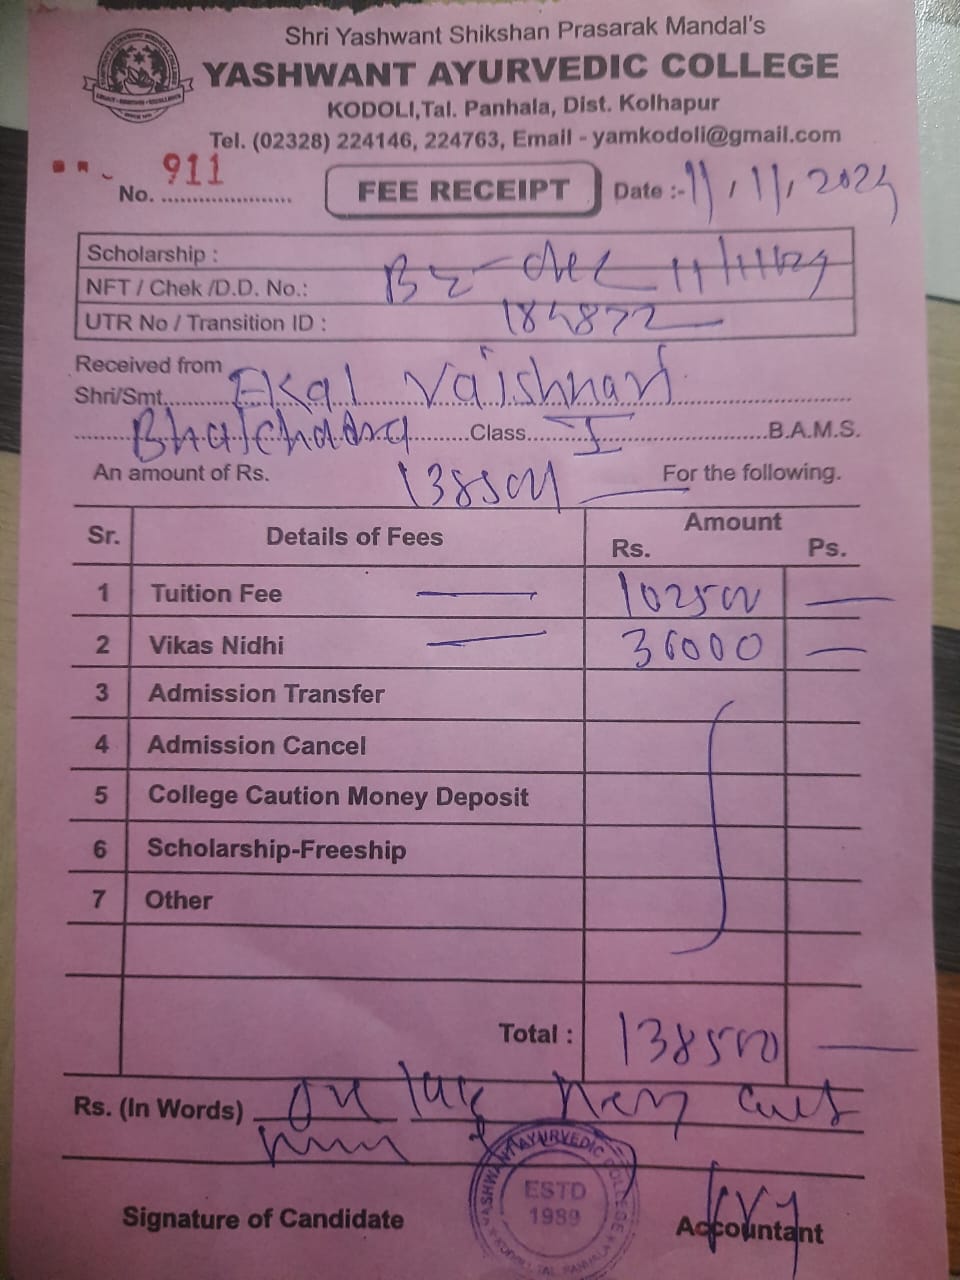 Shri Yashwant Shikshan Prasarak Mandal's
YASHWANT AYURVEDIC COLLEGE
KODOLI,Tal. Panhala, Dist. Kolhapur
Tel. (02328) 224146, 224763, Email - yamkodoli@gmail.com
No. 911 FEE RECEIPT Date :- 11/11/2024
Scholarship :
NFT / Chek /D.D. No.: By 11/11/24
UTR No / Transition ID : 184872
Received from
Shri/Smt. Ekal Vaishnavi
Bhalchadra Class I B.A.M.S.
An amount of Rs. 138500/- For the following.
Sr. Details of Fees Amount
Rs. Ps.
1 Tuition Fee — 102500 —
2 Vikas Nidhi — 36000 —
3 Admission Transfer
4 Admission Cancel
5 College Caution Money Deposit
6 Scholarship-Freeship
7 Other
Total : 138500 —
Rs. (In Words)
YASHWANT AYURVEDIC COLLEGE
ESTD
1989
KODOLI, TAL. PANHALA
Signature of Candidate Accountant